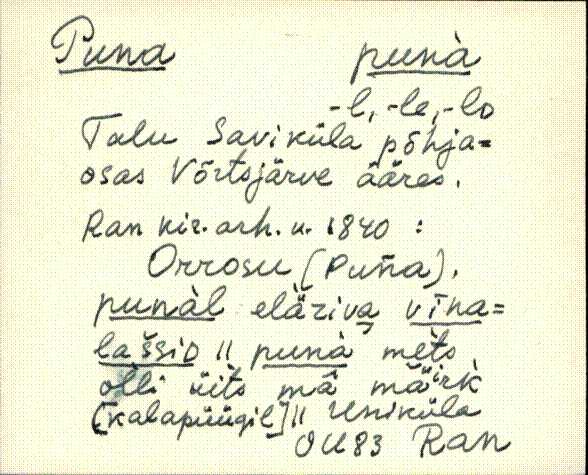 Puna punà
-l, -le, -lo
Talu Saviküla põhja=
osas Võrtsjärve ääres.
Ran kir. arh. u. 1840 :
Orrosu (Puña).
punàl eläziva vīna=
laššiD || punà mets
olli üits mā määrk
[kalapüügil] || Uniküla
OU83 Ran